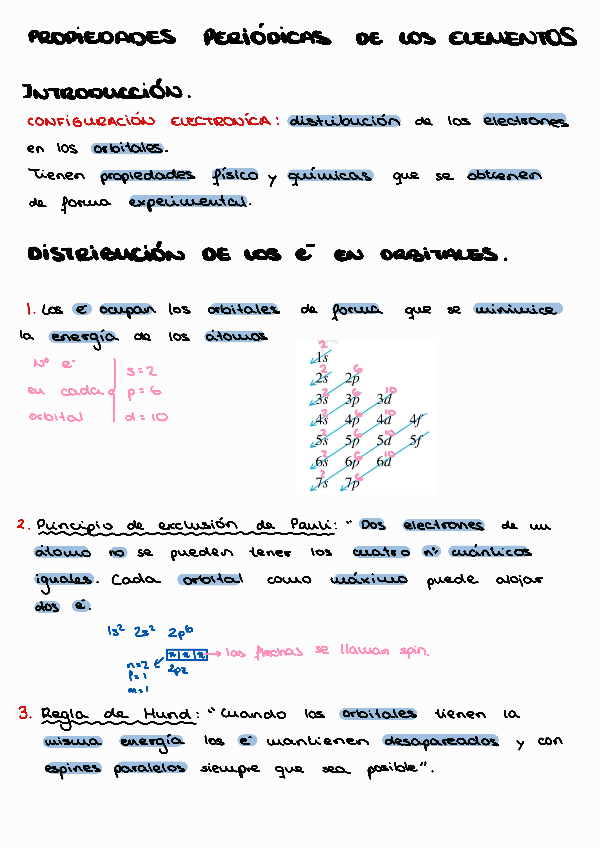 PROPIEDADES PERIÓDICAS DE LOS ELEMENTOS
INTRODUCCIÓN.
CONFIGURACIÓN ELECTRONÍCA: distribución de los electrones
en los orbitales.
Tienen propiedades físico y químicas que se obtienen
de forma experimental.
DISTRIBUCIÓN DE LOS e⁻ EN ORBITALES.
1. Los e⁻ ocupan los orbitales de forma que se minimice
la energía de los átomos
Nº e⁻
en cada
orbital
s=2
p=6
d=10
2
1s
2 6
2s 2p
2 6 10
3s 3p 3d
2 6 10
4s 4p 4d 4f
2 6 10
5s 5p 5d 5f
2 6 10
6s 6p 6d
2 6
7s 7p
2. Principio de exclusión de Pauli: "Dos electrones de un
átomo no se pueden tener los cuatro nº cuánticos
iguales. Cada orbital como máximo puede alojar
dos e⁻.
1s² 2s² 2p⁶
los flechas se llaman spin.
n=2
l=1
m=1
2pz
3. Regla de Hund: "Cuando los orbitales tienen la
misma energía los e⁻ mantienen desapareados y con
espines paralelos siempre que sea posible".